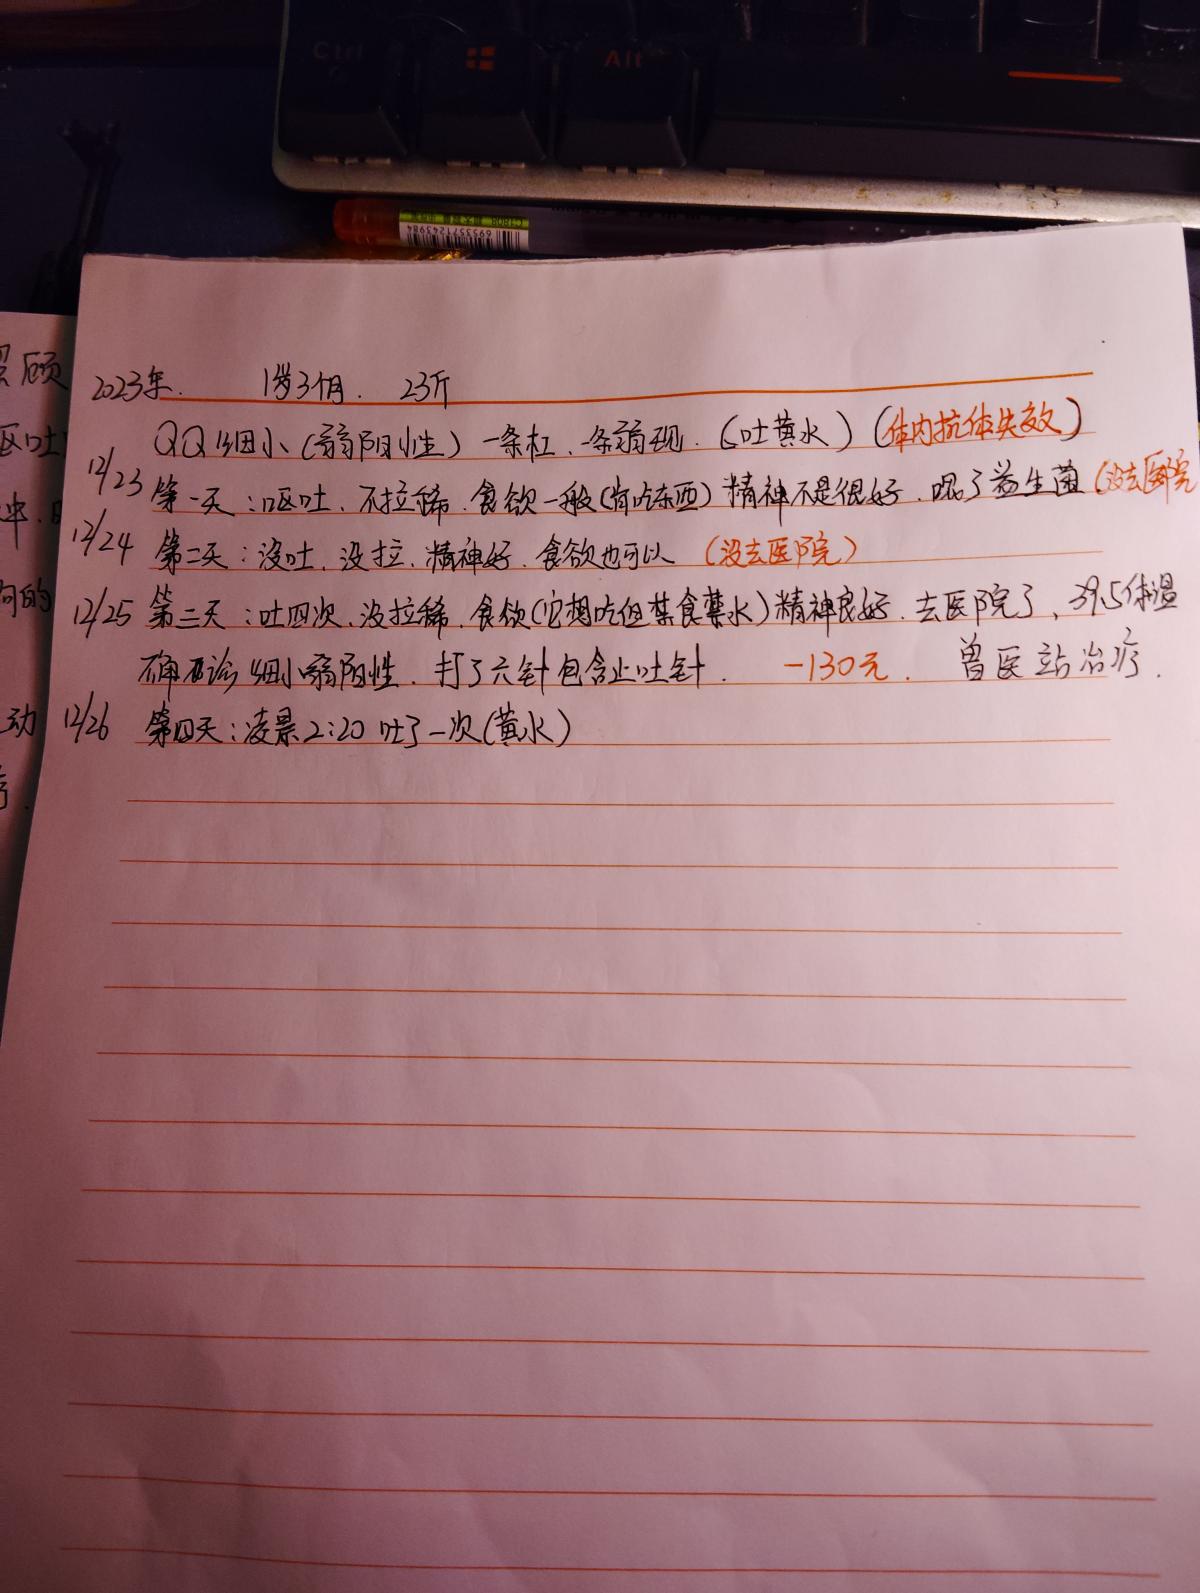 Ctrl
Alt
6935571243984
2023年. 1岁3个月. 23斤
QQ细小(弱阳性)一条杠、一条弱现.(吐黄水)(体内抗体失效)
12/23 第一天:呕吐、不拉稀、食欲一般(有吃东西)精神不是很好.喂了益生菌(没去医院
12/24 第二天:没吐、没拉、精神好.食欲也可以(没去医院)
12/25 第三天:吐四次、没拉稀、食欲(它想吃但禁食禁水)精神良好.去医院了、39.5体温
确诊细小弱阳性.打了六针包含止吐针. -130元. 兽医站治疗.
12/26 第四天:凌晨2:20吐了一次(黄水)
顾
呕吐
的
动